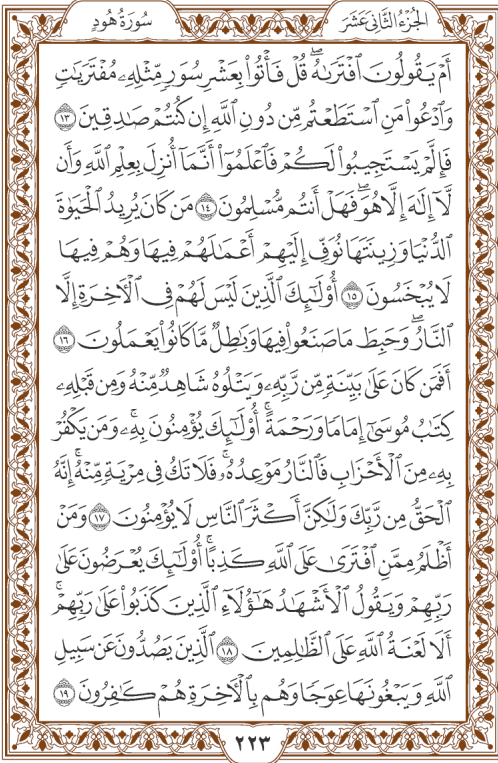 الجُزْءُ الثَّانِيَ عَشَرَ
سُورَةُ هُودٍ
أَمْ يَقُولُونَ ٱفْتَرَىٰهُۖ قُلْ فَأْتُوا۟ بِعَشْرِ سُوَرٍ مِّثْلِهِۦ مُفْتَرَيَٰتٍ
وَٱدْعُوا۟ مَنِ ٱسْتَطَعْتُم مِّن دُونِ ٱللَّهِ إِن كُنتُمْ صَٰدِقِينَ ١٣
فَإِلَّمْ يَسْتَجِيبُوا۟ لَكُمْ فَٱعْلَمُوٓا۟ أَنَّمَآ أُنزِلَ بِعِلْمِ ٱللَّهِ وَأَن
لَّآ إِلَٰهَ إِلَّا هُوَۖ فَهَلْ أَنتُم مُّسْلِمُونَ ١٤ مَن كَانَ يُرِيدُ ٱلْحَيَوٰةَ
ٱلدُّنْيَا وَزِينَتَهَا نُوَفِّ إِلَيْهِمْ أَعْمَٰلَهُمْ فِيهَا وَهُمْ فِيهَا
لَا يُبْخَسُونَ ١٥ أُو۟لَٰٓئِكَ ٱلَّذِينَ لَيْسَ لَهُمْ فِى ٱلْءَاخِرَةِ إِلَّا
ٱلنَّارُۖ وَحَبِطَ مَا صَنَعُوا۟ فِيهَا وَبَٰطِلٌ مَّا كَانُوا۟ يَعْمَلُونَ ١٦
أَفَمَن كَانَ عَلَىٰ بَيِّنَةٍ مِّن رَّبِّهِۦ وَيَتْلُوهُ شَاهِدٌ مِّنْهُ وَمِن قَبْلِهِۦ
كِتَٰبُ مُوسَىٰٓ إِمَامًا وَرَحْمَةًۚ أُو۟لَٰٓئِكَ يُؤْمِنُونَ بِهِۦۚ وَمَن يَكْفُرْ
بِهِۦ مِنَ ٱلْأَحْزَابِ فَٱلنَّارُ مَوْعِدُهُۥۚ فَلَا تَكُ فِى مِرْيَةٍ مِّنْهُۚ إِنَّهُ
ٱلْحَقُّ مِن رَّبِّكَ وَلَٰكِنَّ أَكْثَرَ ٱلنَّاسِ لَا يُؤْمِنُونَ ١٧ وَمَنْ
أَظْلَمُ مِمَّنِ ٱفْتَرَىٰ عَلَى ٱللَّهِ كَذِبًاۚ أُو۟لَٰٓئِكَ يُعْرَضُونَ عَلَىٰ
رَبِّهِمْ وَيَقُولُ ٱلْأَشْهَٰدُ هَٰٓؤُلَآءِ ٱلَّذِينَ كَذَبُوا۟ عَلَىٰ رَبِّهِمْۚ
أَلَا لَعْنَةُ ٱللَّهِ عَلَى ٱلظَّٰلِمِينَ ١٨ ٱلَّذِينَ يَصُدُّونَ عَن سَبِيلِ
ٱللَّهِ وَيَبْغُونَهَا عِوَجًا وَهُم بِٱلْءَاخِرَةِ هُمْ كَٰفِرُونَ ١٩
٢٢٣